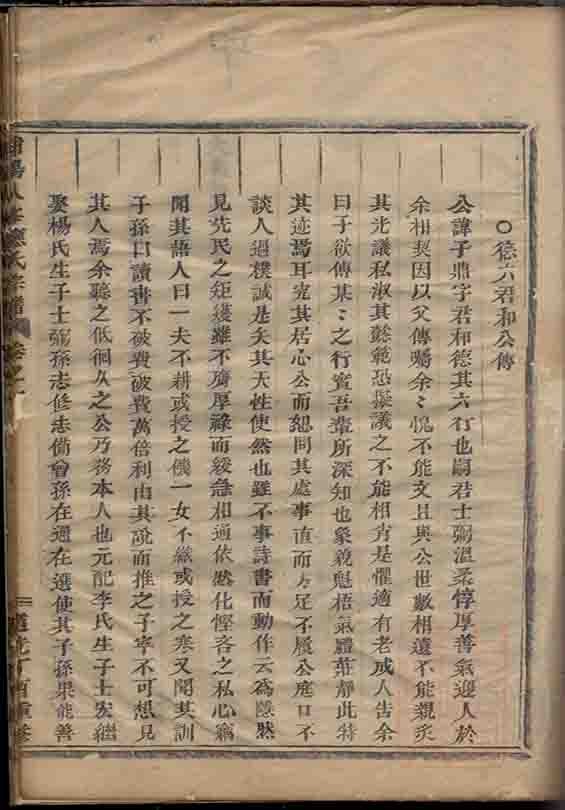 德六君和公傳
公諱子鼎字君和德其六行也嗣君士弼溫柔惇厚善氣迎人於
余相契因以父傳囑余〻愧不能文且與公世數相遠不能親炙
其光議私淑其懿範恐擬議之不能相肖是懼適有老成人告余
曰子欲傳某〻之行實吾輩所深知也象貌魁梧氣體莊靜此特
其迹焉耳究其居心公而恕問其處事直而方足不履公庭口不
談人過樸誠是矢其天性使然也雖不事詩書而動作云為隱然
見先民之矩矱雖不膺厚祿而緩急相通依然化慳吝之私心竊
聞其語人曰一夫不耕或授之饑一女不織或授之寒又聞其訓
子孫曰讀書不破費破費萬倍利由其說而推之子寧不可想見
其人焉余聽之低徊久之公乃務本人也元配李氏生子士宏繼
娶楊氏生子士弼孫志修志備曾孫在通在選使其子孫果能善
陽 氏宗譜 卷之
道光丁酉重修